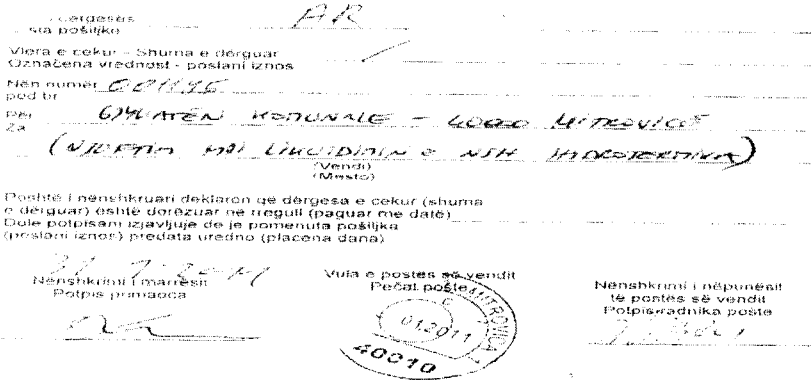 AR
sta pošiljke
Vlera e cekur - Shuma e dërguar
Označena vrednost - poslani iznos
Nën numër 001195
pod br
Për GJYKATËN KOMUNALE - 40000 MITROVICË
Za
(NJOFTIM MBI LIKUIDIMIN E NSH HIDROTERMIKA)
(Vendi)
(Mesto)
Poshtë i nënshkruari deklaron që dërgesa e cekur (shuma
e dërguar) është dorëzuar në rregull (paguar me datë)
Dole potpisani izjavljuje da je pomenuta pošiljka
(poslani iznos) predata uredno (plaćena dana)
Nënshkrimi i marrësit
Potpis primaoca
Vula e postës së vendit
Pečat pošte
MITROVICA
01.2011
40010
Nënshkrimi i nëpunësit
të postës së vendit
Potpis radnika pošte